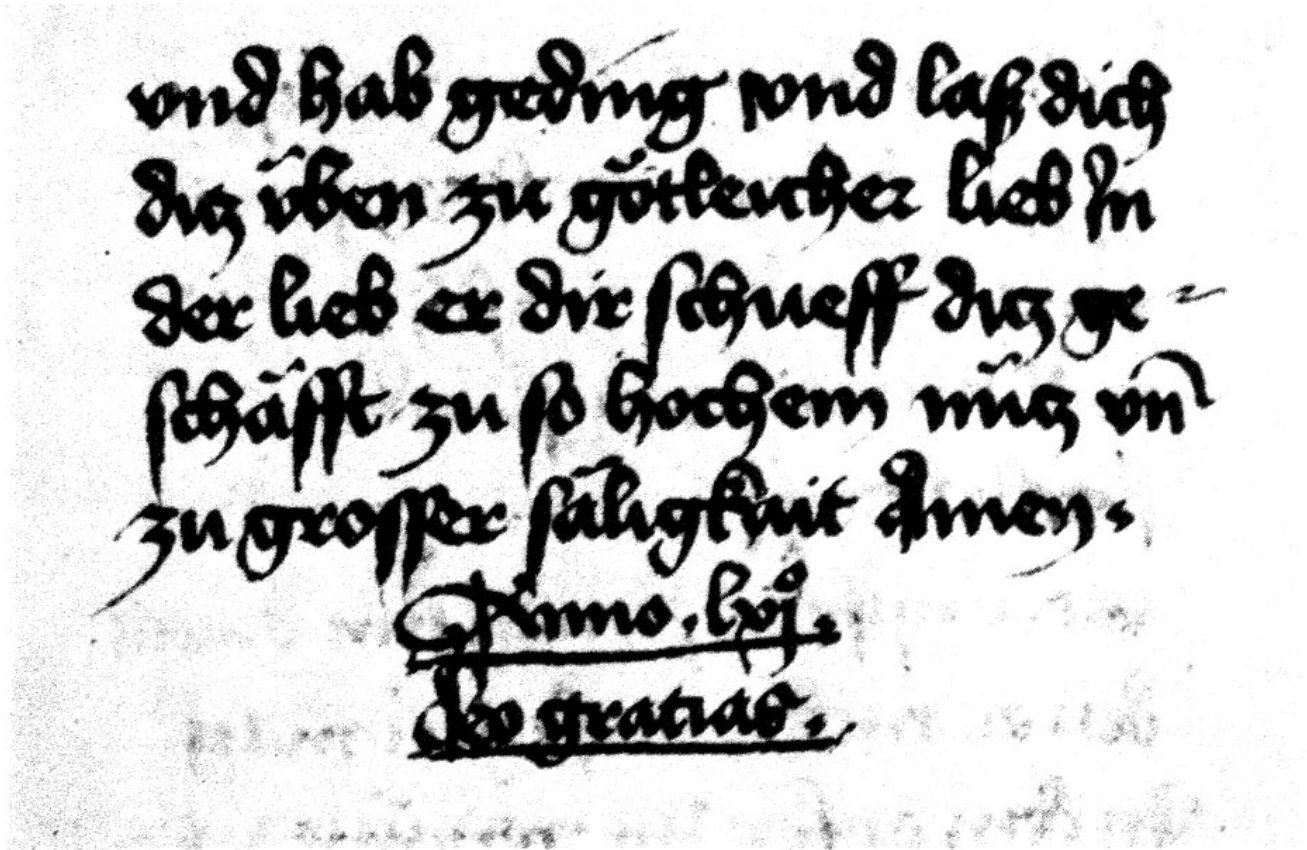 vnd hab geding vnd laß dich
ditz üben zu götleicher lieb In
der lieb er dir schueff ditz ge-
schäfft zu so hochem nütz vn̄
zu grosser säligkait Amen.
Anno . lxj° .
deo gratias .